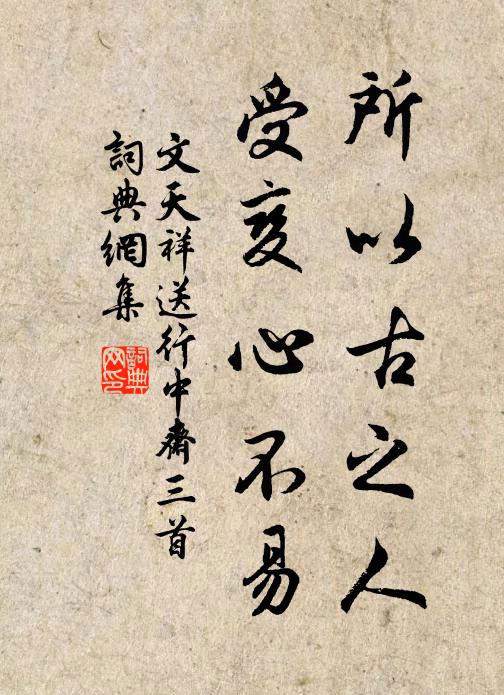 所以古之人
受变心不易
文天祥送行中齋三首
詞典網集
詞典網印